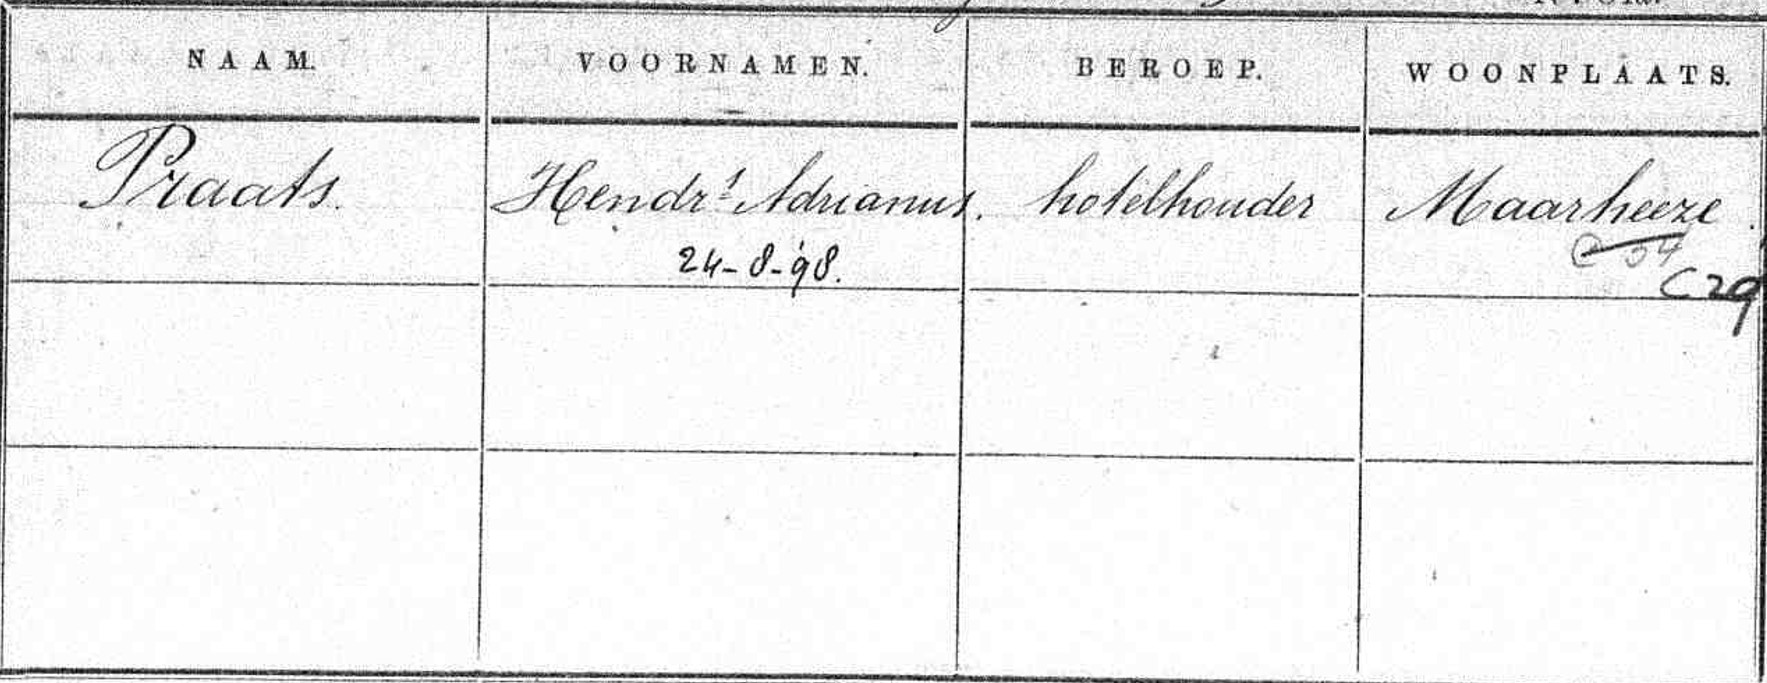 NAAM. VOORNAMEN. BEROEP. WOONPLAATS.
Praats. Hendrs Adrianus. hotelhouder Maarheeze.
24-8-'98. C 54
C 29